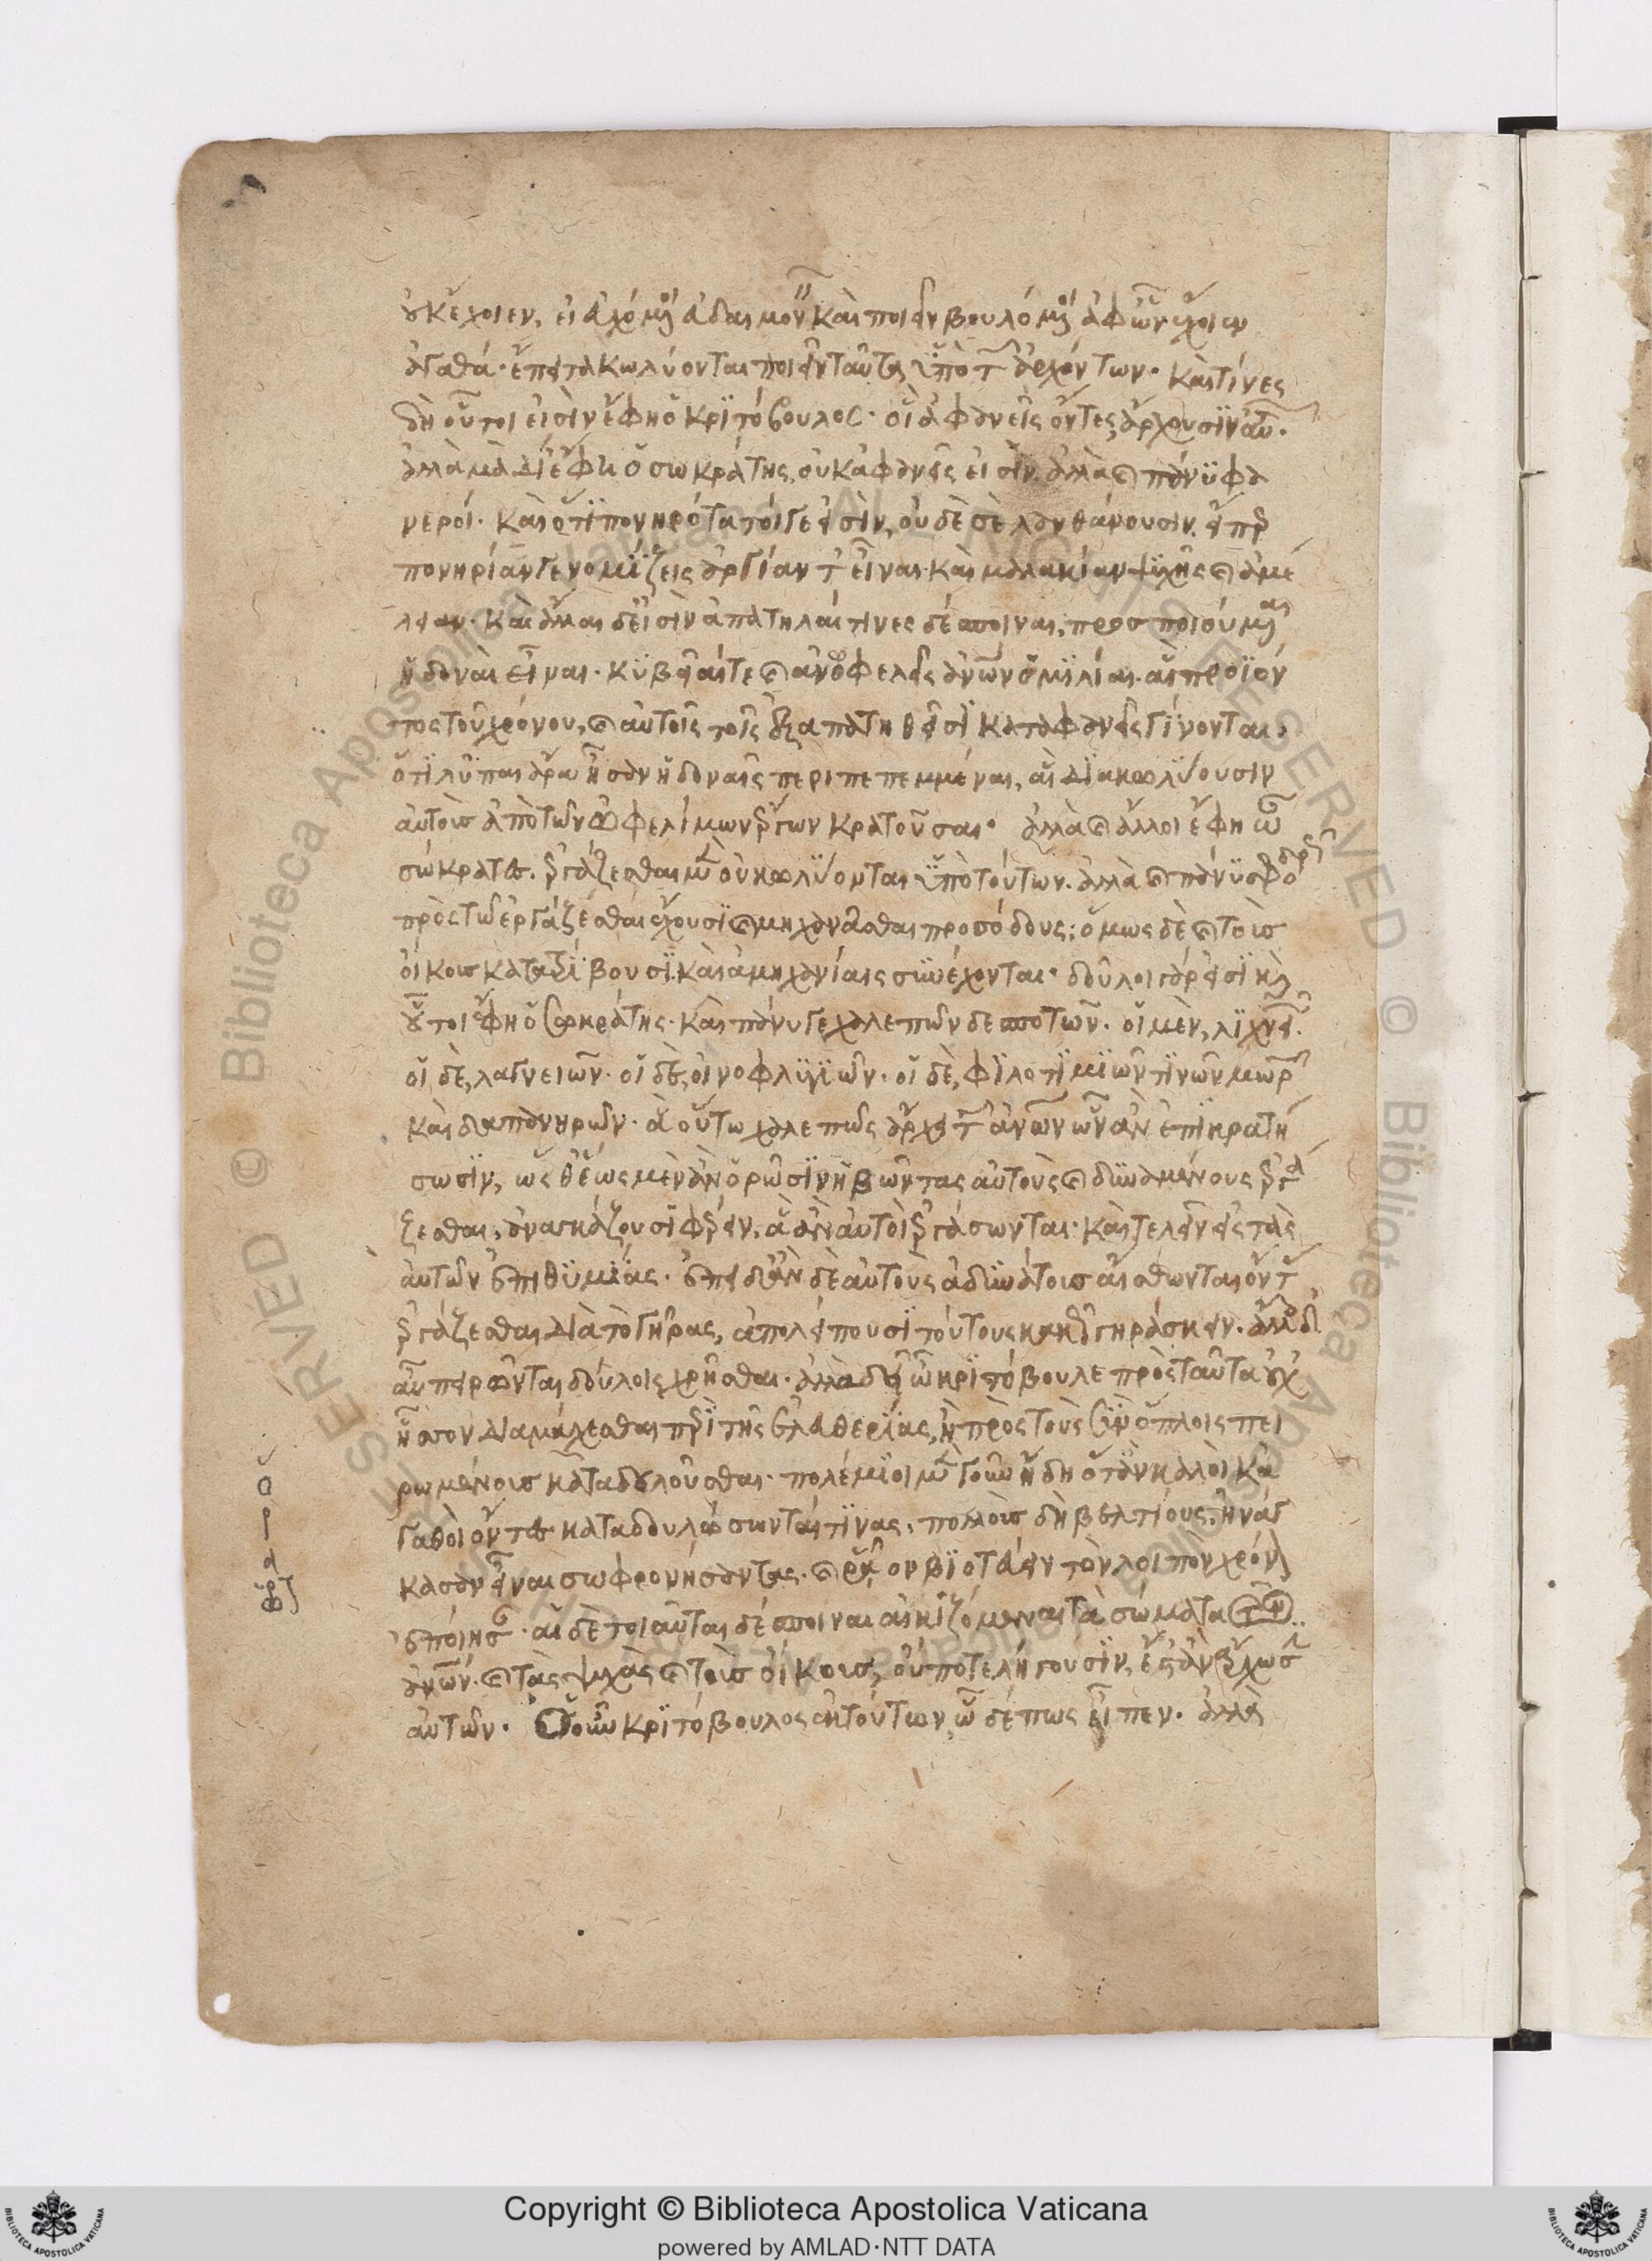 οὐκ ἔχοιεν, εἰ εὐχόμενοι εὐδαιμονεῖν καὶ ποιεῖν βουλόμενοι ἀφ' ὧν ἔχοιεν
ἀγαθά· ἔπειτα κωλύονται ποιεῖν ταῦτα ὑπὸ τῶν ἀρχόντων· καὶ τίνες
δὴ οὗτοί εἰσιν ἔφη ὁ κριτόβουλος· οἳ ἀφανεῖς ὄντες, ἄρχουσιν αὐτῶν·
ἀλλὰ μὰ Δί' ἔφη ὁ σωκράτης, οὐκ ἀφανεῖς εἰσὶν. ἀλλὰ καὶ πάνυ φα
νεροί· καὶ ὅτι πονηρότατοί γέ εἰσιν, οὐδὲ σὲ λανθάνουσιν. εἴπερ
πονηρίαν γε νομίζεις ἀργίαν τ' εἶναι· καὶ μαλακίαν ψυχῆς καὶ ἀμέ
λειαν· καὶ ἄλλαι δ' εἰσὶν ἀπατηλαί τινες δέσποιναι, προσποιούμεναι
ἡδοναὶ εἶναι· κυβεῖαί τε καὶ ἀνωφελεῖς ἀνθρώπων ὁμιλίαι· αἳ προϊόν
τος τοῦ χρόνου, καὶ αὐτοῖς τοῖς ἐξαπατηθεῖσι καταφανεῖς γίνονται.
ὅτι λῦπαι ἄρα ἦσαν ἡδοναῖς περιπεπεμμέναι, αἳ διακωλύουσιν
αὐτοὺς ἀπὸ τῶν ὠφελίμων ἔργων κρατοῦσαι· ἀλλὰ καὶ ἄλλοι ἔφη ὦ
σώκρατες. ἐργάζεσθαι μὲν οὐ κωλύονται ὑπὸ τούτων. ἀλλὰ καὶ πάνυ σφοδρῶς
πρὸς τὸ ἐργάζεσθαι ἔχουσι καὶ μηχανᾶσθαι προσόδους· ὅμως δὲ καὶ τοὺς
οἴκους κατατρίβουσι. καὶ ἀμηχανίαις συνέχονται· δοῦλοι γάρ εἰσι καὶ
οὗτοι ἔφη ὁ σωκράτης· καὶ πάνυ γε χαλεπῶν δεσποτῶν· οἱ μὲν, λιχνειῶν.
οἱ δὲ, λαγνειῶν· οἱ δὲ, οἰνοφλυγιῶν· οἱ δὲ, φιλοτιμιῶν τινῶν μωρῶν
καὶ δαπανηρῶν· ἃ οὕτω χαλεπῶς ἄρχει τῶν ἀνθρώπων ὧν ἂν ἐπικρατή
σωσιν, ὥσθ' ἕως μὲν ἂν ὁρῶσιν ἡβῶντας αὐτοὺς καὶ δυναμένους ἐργά
ζεσθαι, ἀναγκάζουσι φέρειν. ἃ ἂν αὐτοὶ ἐργάσωνται· καὶ τελεῖν εἰς τὰς
αὐτῶν ἐπιθυμίας· ἐπειδὰν δὲ αὐτοὺς ἀδυνάτους αἴσθωνται ὄντας
ἐργάζεσθαι διὰ τὸ γῆρας, ἀπολείπουσι τούτους κακῶς γηράσκειν. ἄλλοις δ'
αὖ πειρῶνται δούλοις χρῆσθαι· ἀλλὰ δεῖ ὦ κριτόβουλε πρὸς ταῦτα οὐχ
ἧττον διαμάχεσθαι περὶ τῆς ἐλευθερίας, ἢ πρὸς τοὺς σὺν ὅπλοις πει
ρωμένους καταδουλοῦσθαι· πολέμιοι μὲν γοῦν ἤδη ὅταν καλοὶ κἀ
γαθοὶ ὄντες καταδουλώσωνταί τινας, πολλοὺς δὴ βελτίους, ἠνάγ
κασαν εἶναι σωφρονήσαντας· καὶ ῥᾷον βιοτεύειν τὸν λοιπὸν χρόνον
ἐποίησαν· αἱ δὲ τοιαῦται δέσποιναι αἰκιζόμεναι τὰ σώματα τῶν
ἀνθρώπων· καὶ τὰς ψυχὰς καὶ τοὺς οἴκους, οὔποτε λήγουσιν, ἔστ' ἂν ἄρχωσιν
αὐτῶν· Ὁ οὖν κριτόβουλος ἐκ τούτων, ὧδέ πως εἶπεν· ἀλλὰ